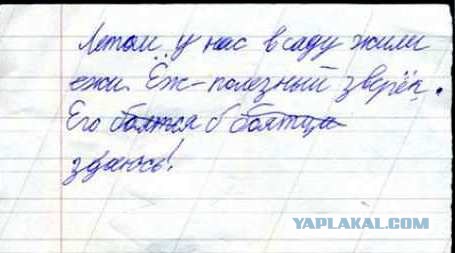 Летом у нас в саду жили
ежи. Ёж-полезный зверёк.
Его боятся б боятца
здаюсь!
YAPLAKAL.COM